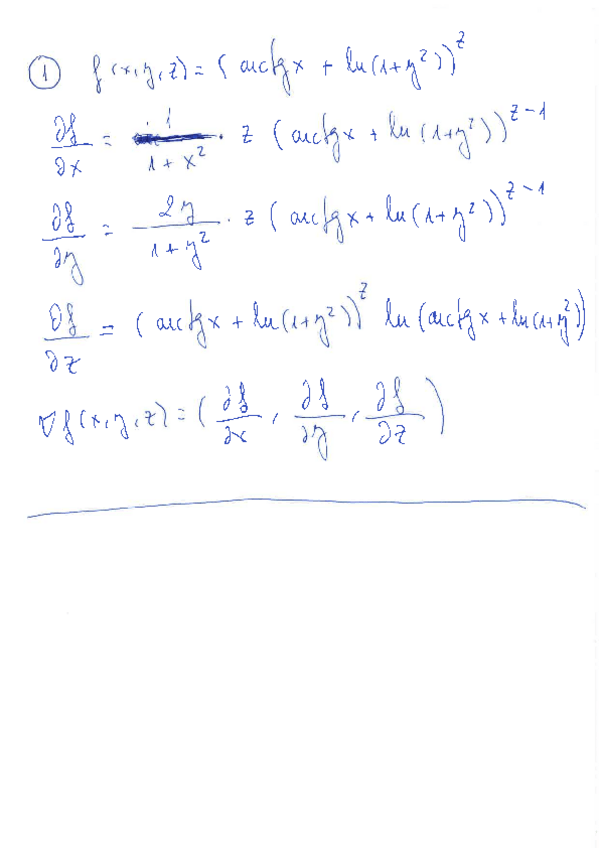 ① f(x,y,z) = (arctgx + ln(1+y²))^z
∂f/∂x = 1/(1+x²) · z (arctgx + ln(1+y²))^(z-1)
∂f/∂y = 2y/(1+y²) · z (arctgx + ln(1+y²))^(z-1)
∂f/∂z = (arctgx + ln(1+y²))^z ln(arctgx + ln(1+y²))
∇f(x,y,z) = (∂f/∂x, ∂f/∂y, ∂f/∂z)